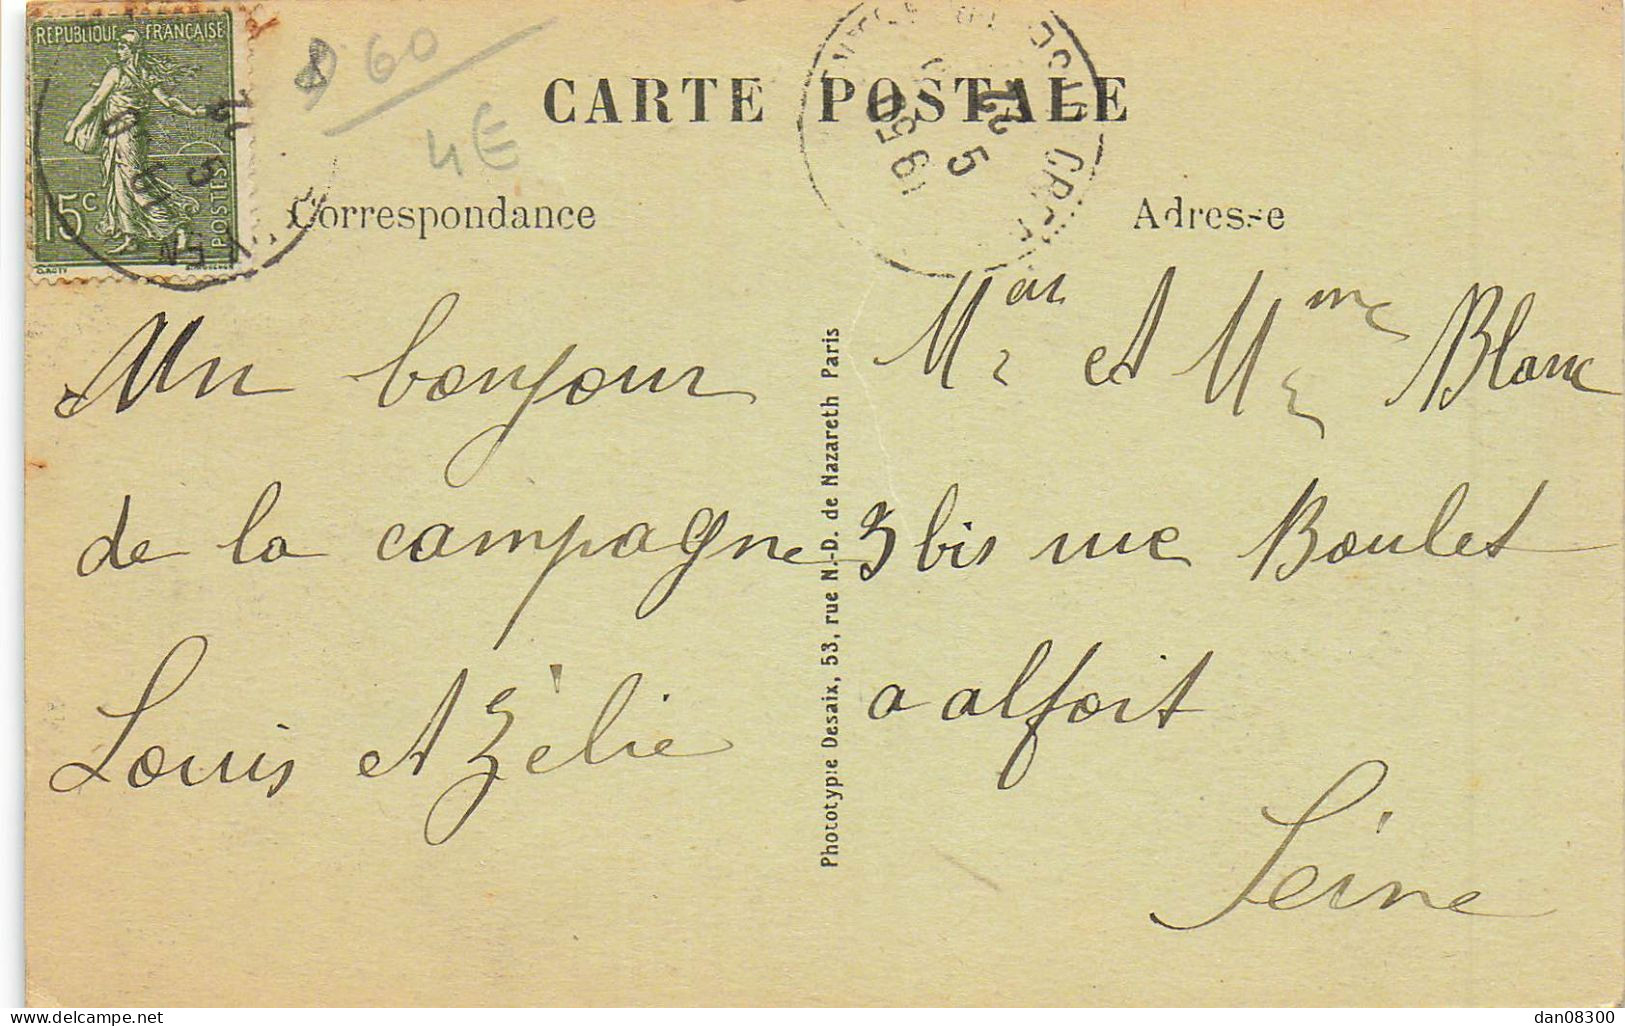 RÉPUBLIQUE FRANÇAISE
15c
POSTES
60
4€
CARTE POSTALE
Correspondance
Adresse
Un bonjour
de la campagne
Louis et Zèlie
Phototypie Desaix, 53, rue N.-D. de Nazareth Paris
Mr et Mme Blanc
3 bis rue Boulet
a alfort
Seine
www.delcampe.net
dan08300